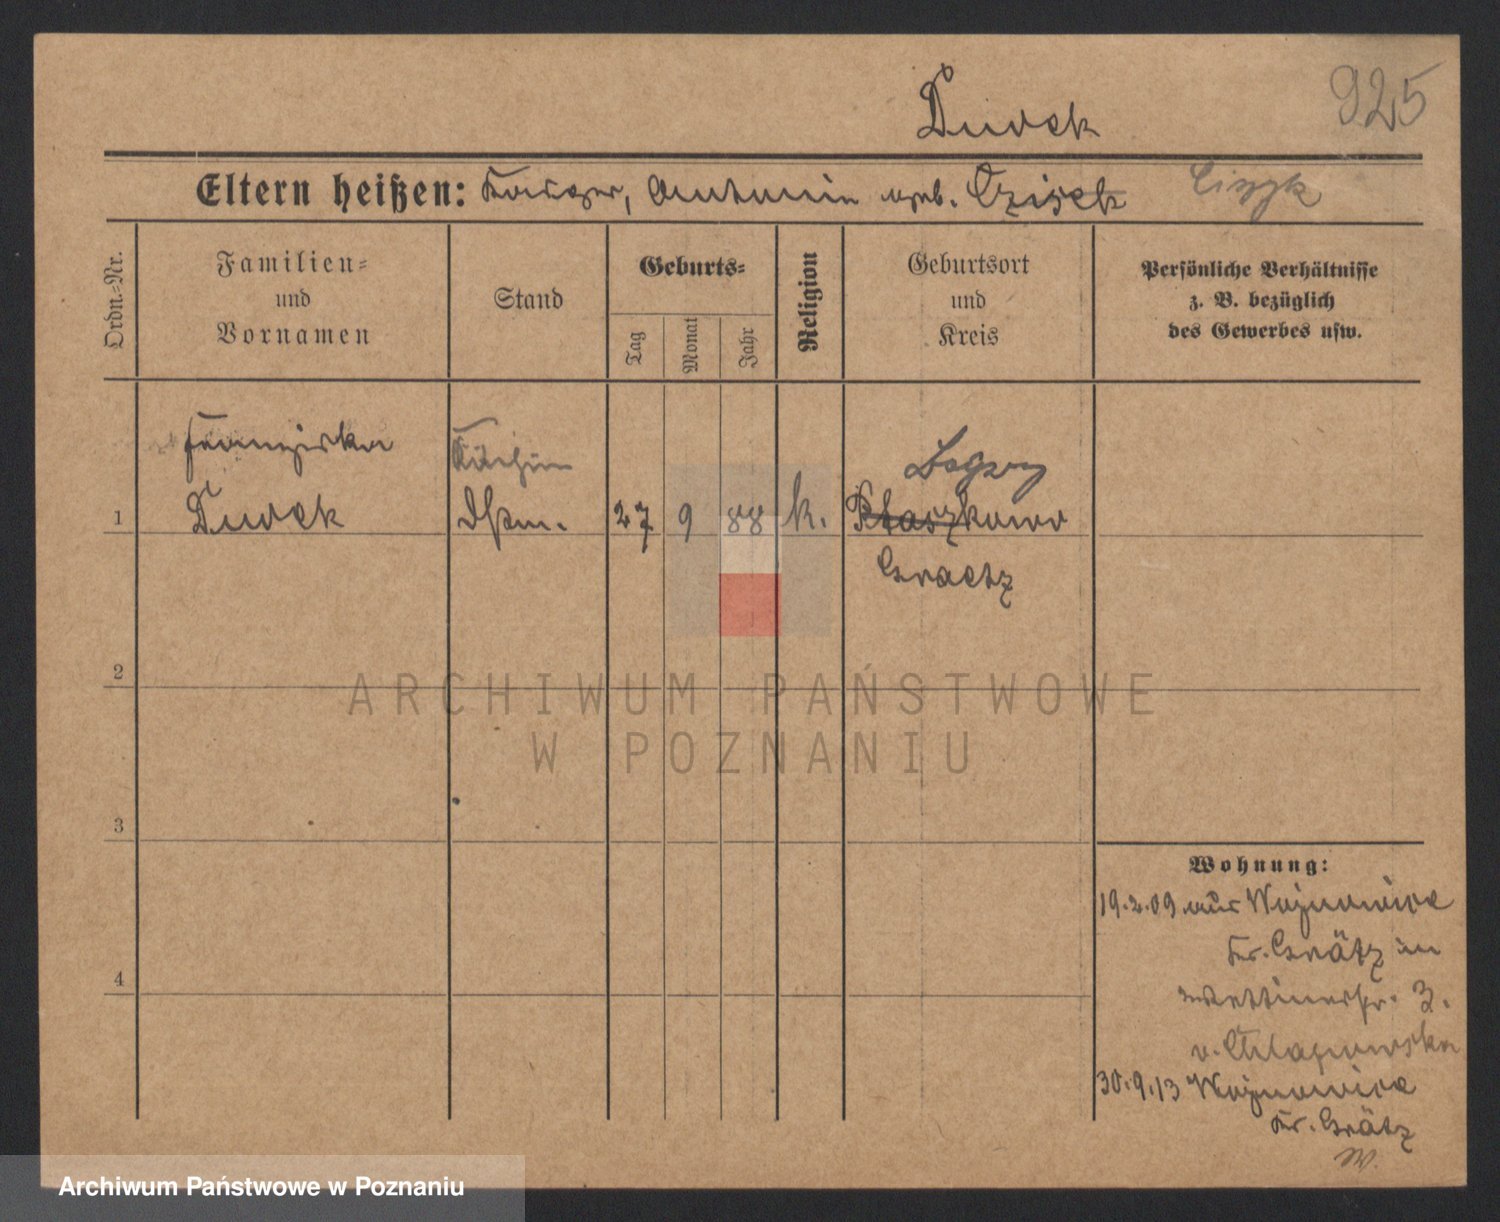 Dudek
925
Eltern heißen: Kasper, Antonie geb. Czisek Ciszyk
Ordn.-Nr.
Familien-
und
Vornamen
Stand
Geburts-
Tag
Monat
Jahr
Religion
Geburtsort
und
Kreis
Persönliche Verhältnisse
z. B. bezüglich
des Gewerbes usw.
Franziska
Köchin
1
Dudek
27
9
88
k.
Ptaszkowo
Graetz
2
3
4
Wohnung:
19.2.09 aus Wojnowice
Kr. Grätz in
3.
v.
30.9.13 Wojnowice
Kr. Grätz
ARCHIWUM PAŃSTWOWE
W POZNANIU
Archiwum Państwowe w Poznaniu